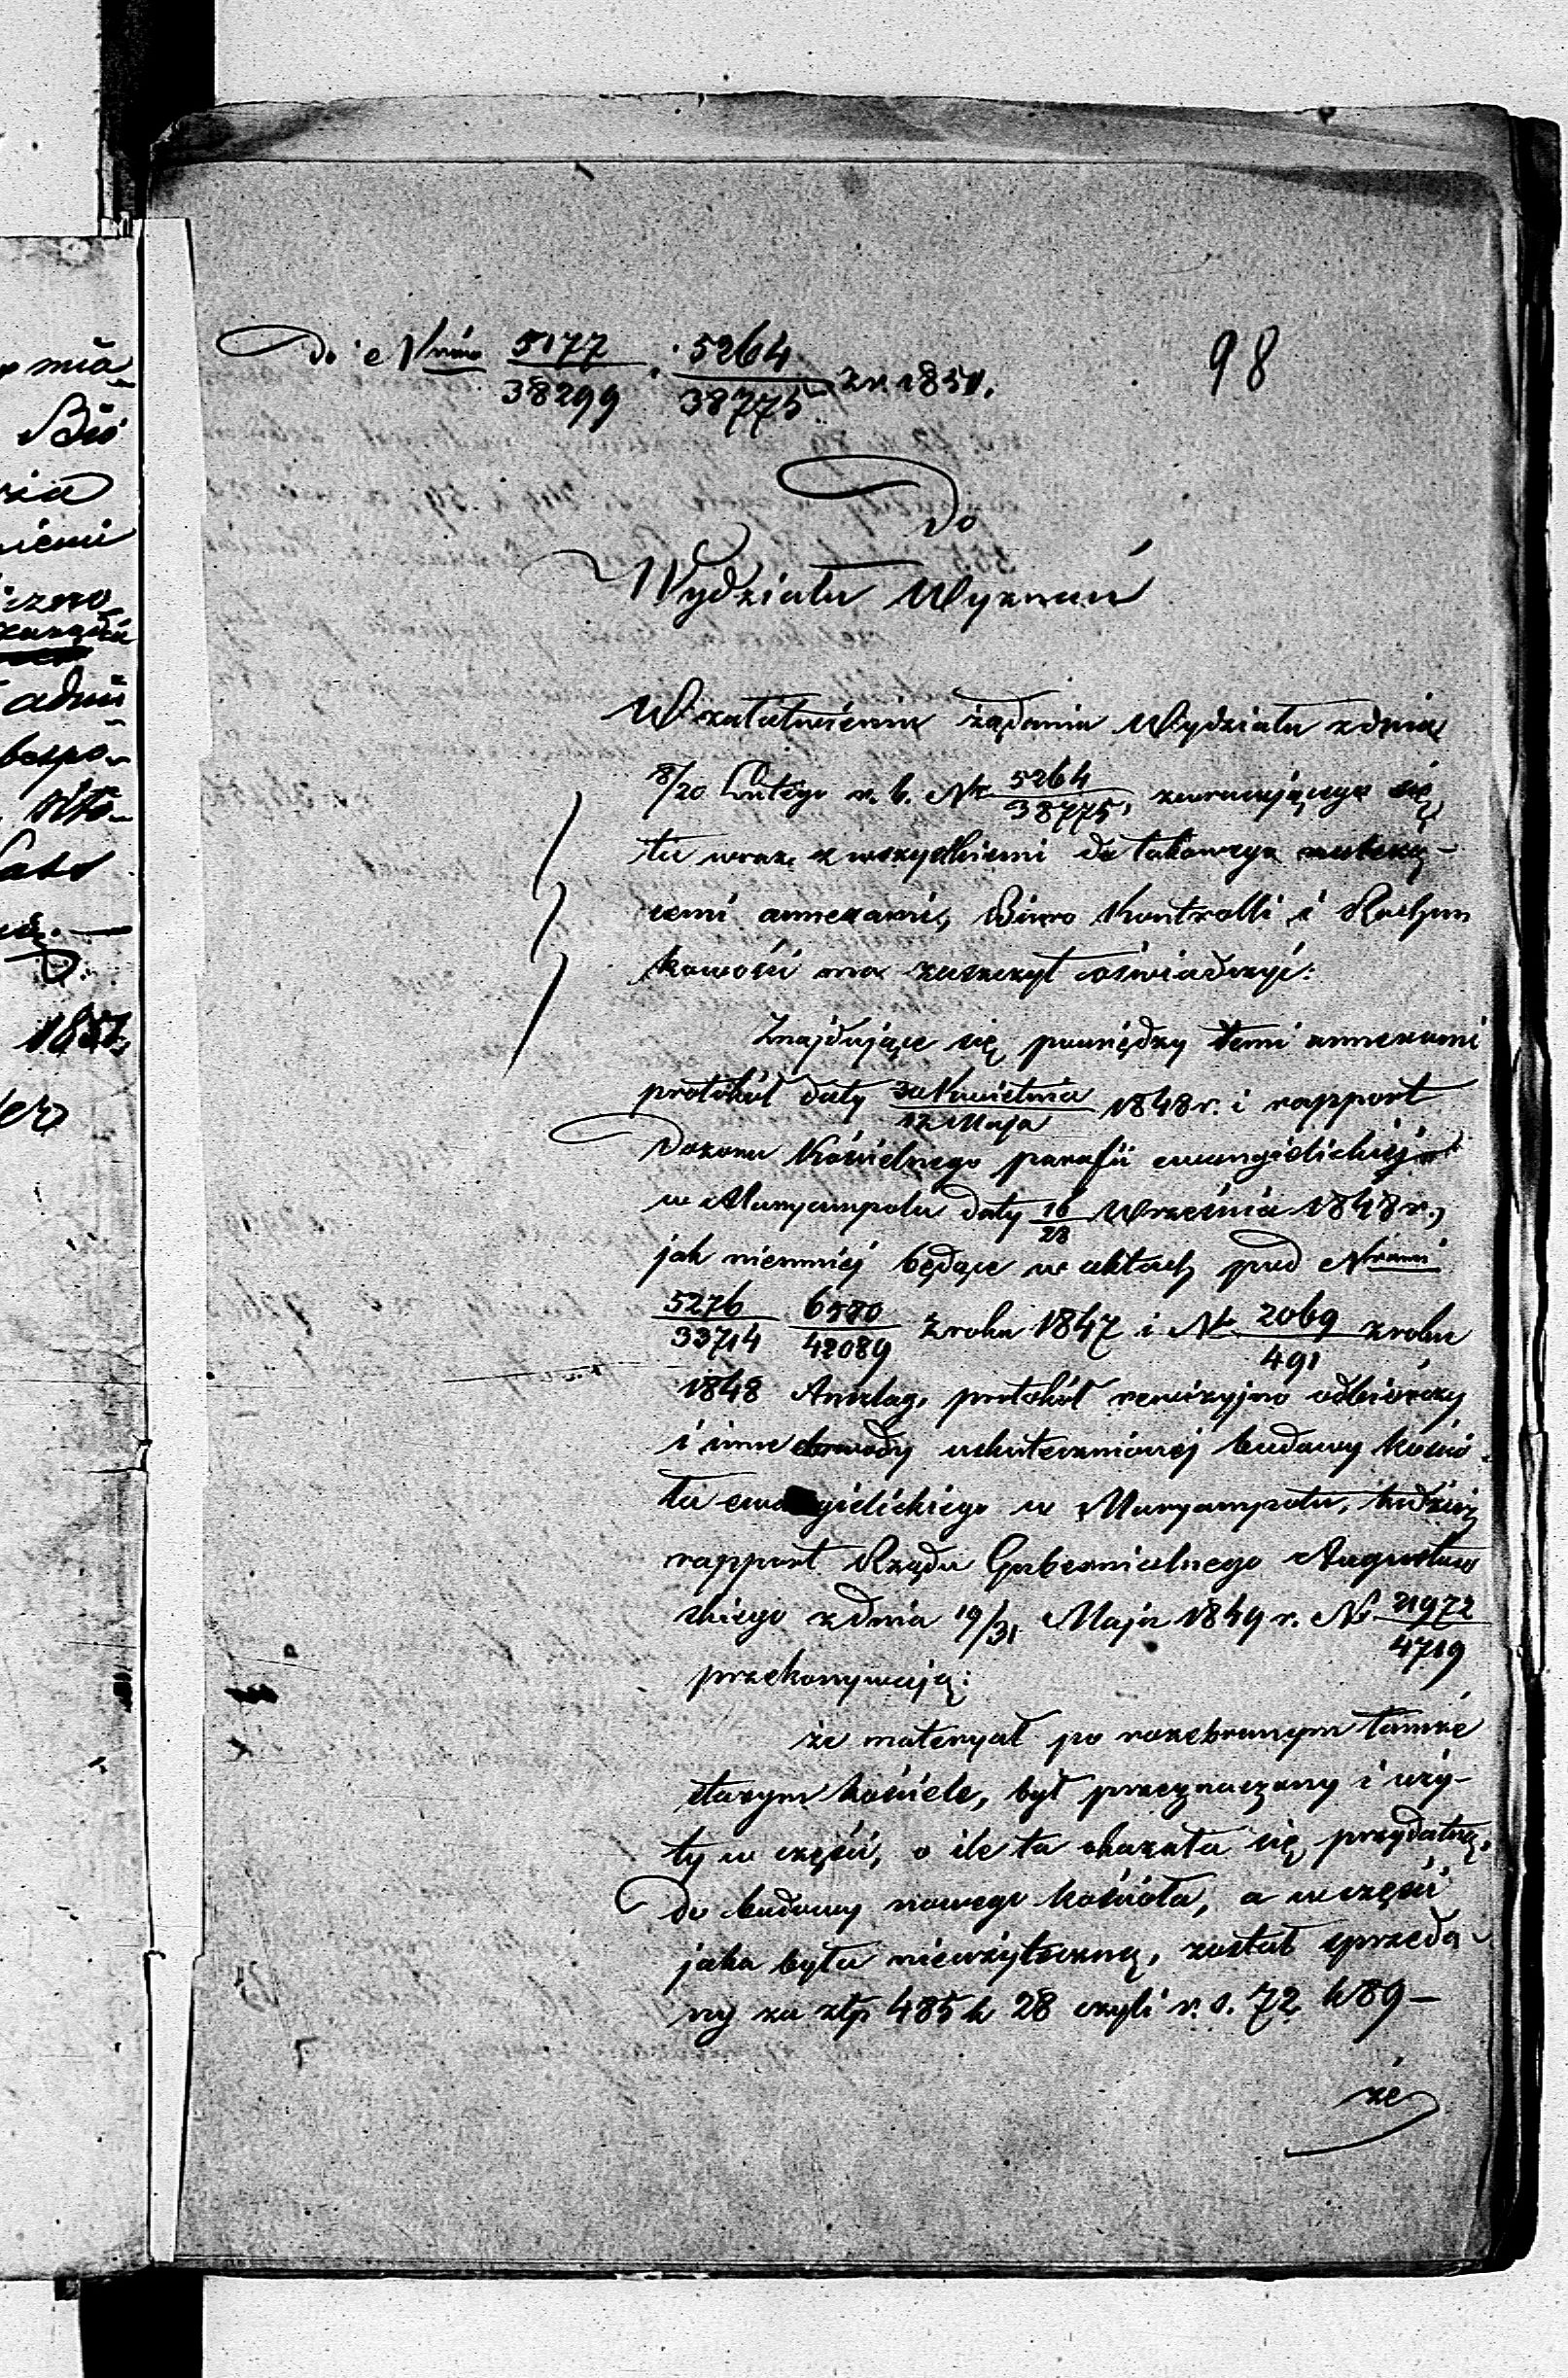 Do Nrów 5177/38299 . 5264/38775 z r. 1851.
98
Do
Wydziału Wyznań
W załatwieniu żądania Wydziału z dnia
8/20 Lutego r. b. Nr 5264/38775, zwracającego się
tu wraz z wszystkiemi do takowego należą-
cemi annexami, Biuro Kontrolli i Rachun
kowości ma zaszczyt oświadczyć:
Znajdujące się pomiędzy temi annexami
protokół daty 30 Kwietnia/12 Maja 1848 r. i rapport
Dozoru Kościelnego parafii ewangielickiej
w Maryampolu daty 16/28 Września 1848 r.,
jak niemniej będące w aktach pod Nrami
5276/33714 6580/42089 z roku 1847 i Nr 2069/491 z roku
1848 Anszlag, protokół rewizyjno odbiorczy
i inne dowody uskutecznionej budowy kościo
ła ewangielickiego w Maryampolu, tudzież
rapport Rządu Gubernialnego Augustow
skiego z dnia 19/31 Maja 1849 r. Nr 21972/4719
przekonywają:
że materyał po rozebranym tamże
starym kościele, był przeznaczony i uży-
ty w części, o ile ta okazała się przydatną,
do budowy nowego kościoła, a w części
jaka była nieużyteczną, został sprzeda
ny za złp 485 h 28 czyli r. s. 72 k 89 -
że
mia
Bió
nia
niemi
admi
bespo-
1851